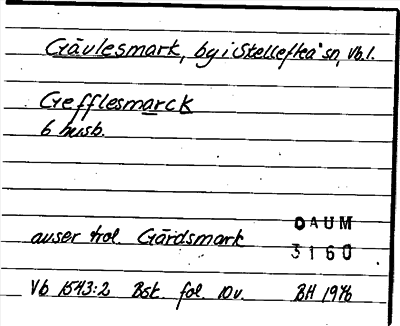 Gävlesmark, by i Skellefteå sn, Vb. l.
Gefflesmarck
6 husb.
DAUM
avser trol. Gärdsmark
3160
Vb 1543:2 Bst. fol. 10v. BH 1976